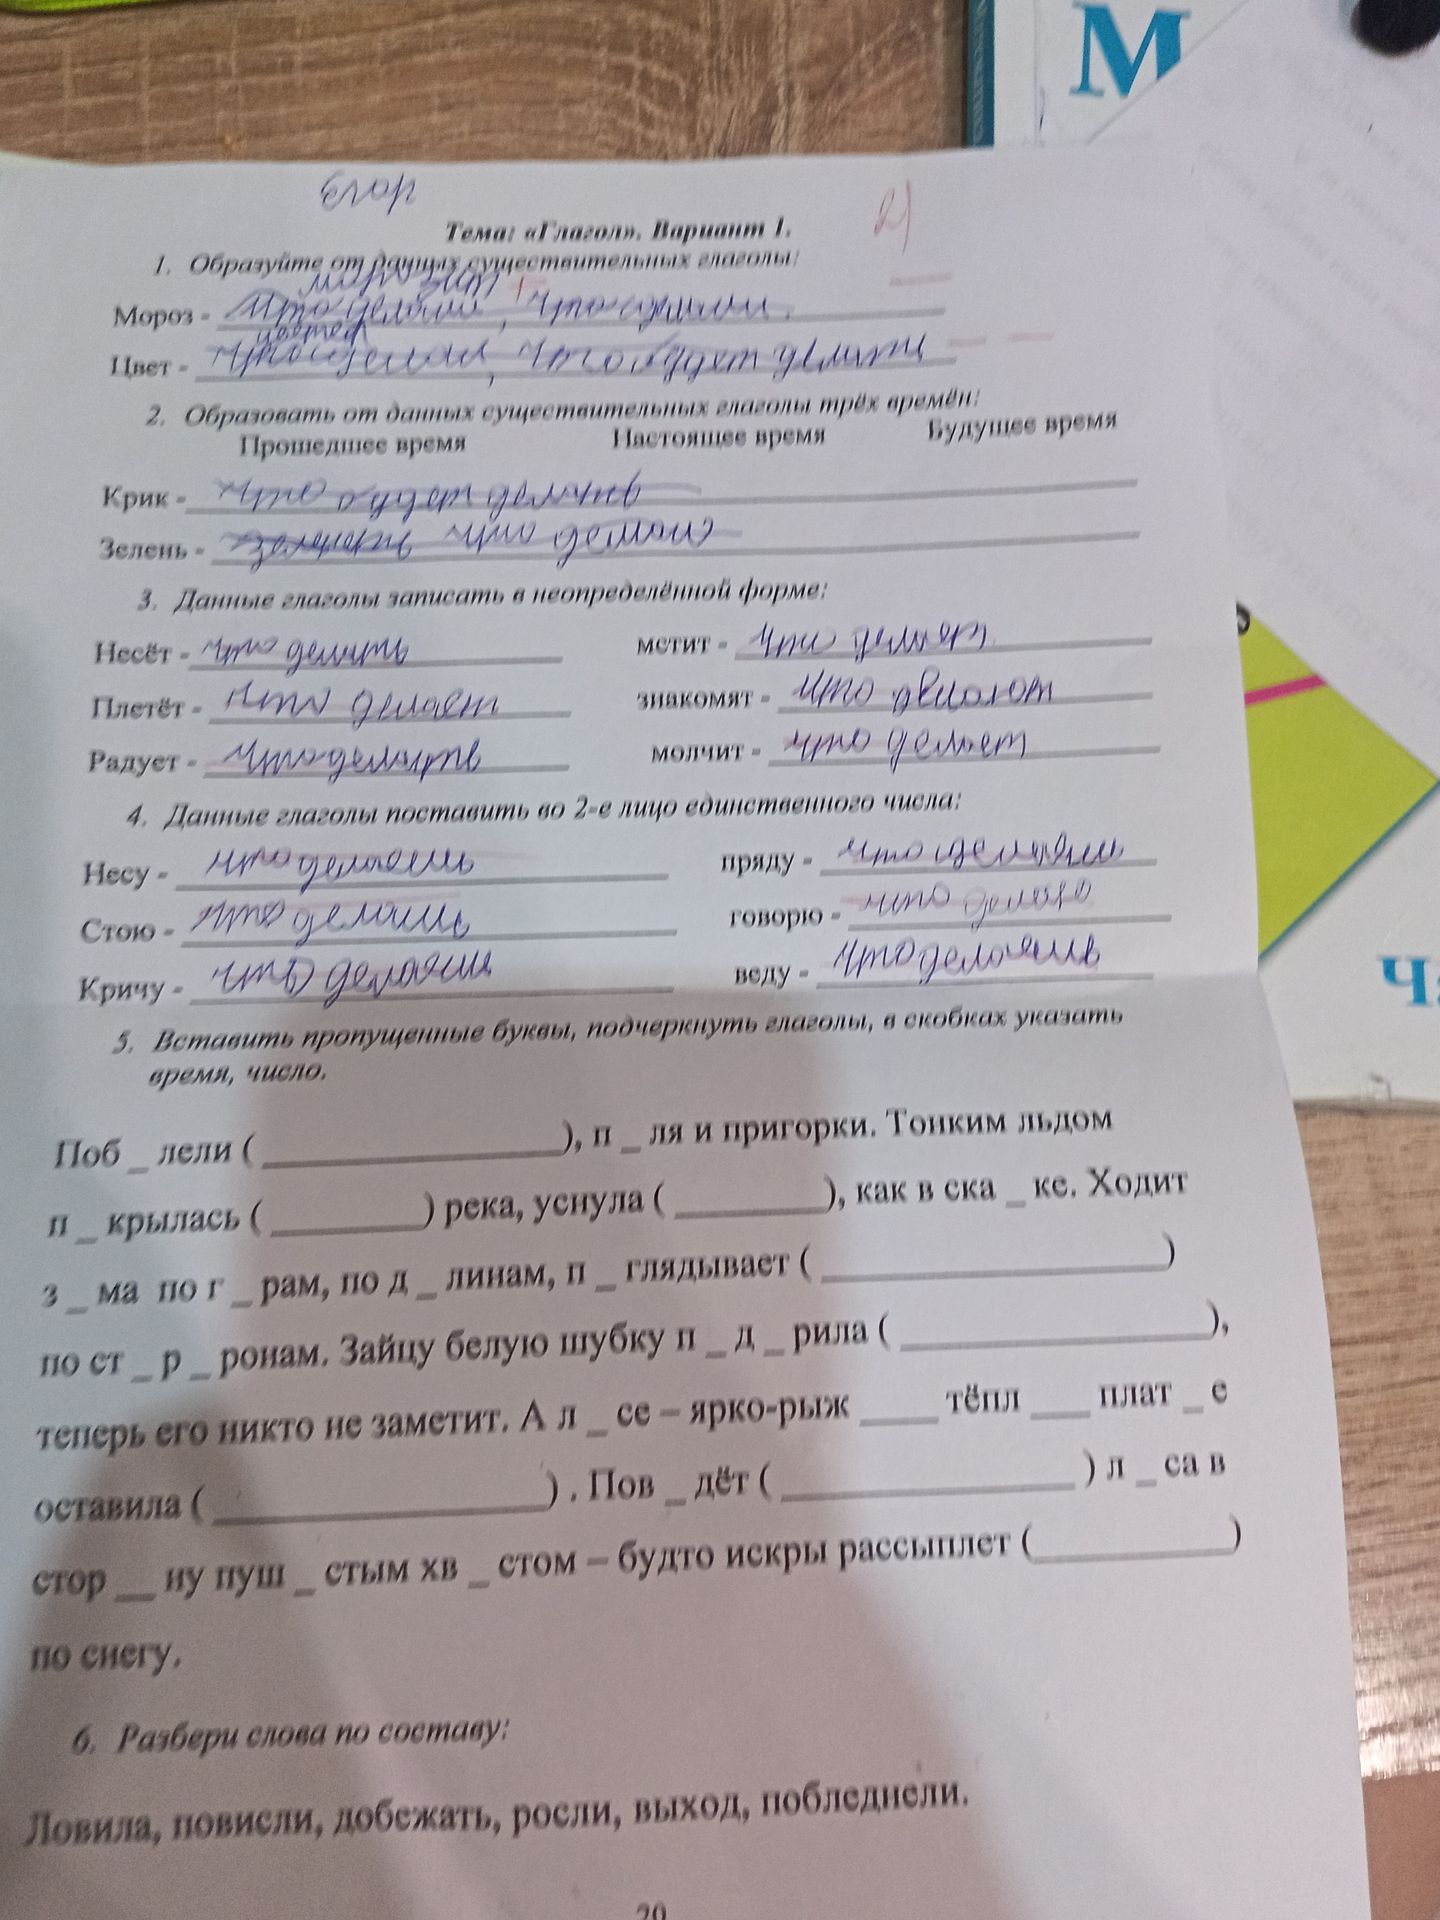 М
Егор
2)
Тема: «Глагол». Вариант 1.
1. Образуйте от данных существительных глаголы:
морозит
Мороз - что делали, что сделали.
цветёт
Цвет - что сделал, что будет делать
2. Образовать от данных существительных глаголы трёх времён:
Прошедшее время Настоящее время Будущее время
Крик - что будет делать
Зелень - что делал
3. Данные глаголы записать в неопределённой форме:
Несёт - что делать мстит - что делает
Плетёт - что делает знакомят - что делают
Радует - что делать молчит - что делает
4. Данные глаголы поставить во 2-е лицо единственного числа:
Несу - что делаешь пряду - что
Стою - что говорю - что делаю
Кричу - что веду - что
5. Вставить пропущенные буквы, подчеркнуть глаголы, в скобках указать
время, число.
Поб _ лели ( ____ ), п _ ля и пригорки. Тонким льдом
п _ крылась ( ____ ) река, уснула ( ____ ), как в ска _ ке. Ходит
з _ ма по г _ рам, по д _ линам, п _ глядывает ( ____ )
по ст _ р _ ронам. Зайцу белую шубку п _ д _ рила ( ____ ),
теперь его никто не заметит. А л _ се – ярко-рыж ____ тёпл ___ плат _ е
оставила ( ____ ) . Пов _ дёт ( ____ ) л _ са в
стор __ ну пуш _ стым хв _ стом – будто искры рассыплет ( ____ )
по снегу.
6. Разбери слова по составу:
Ловила, повисли, добежать, росли, выход, побледнели.
20